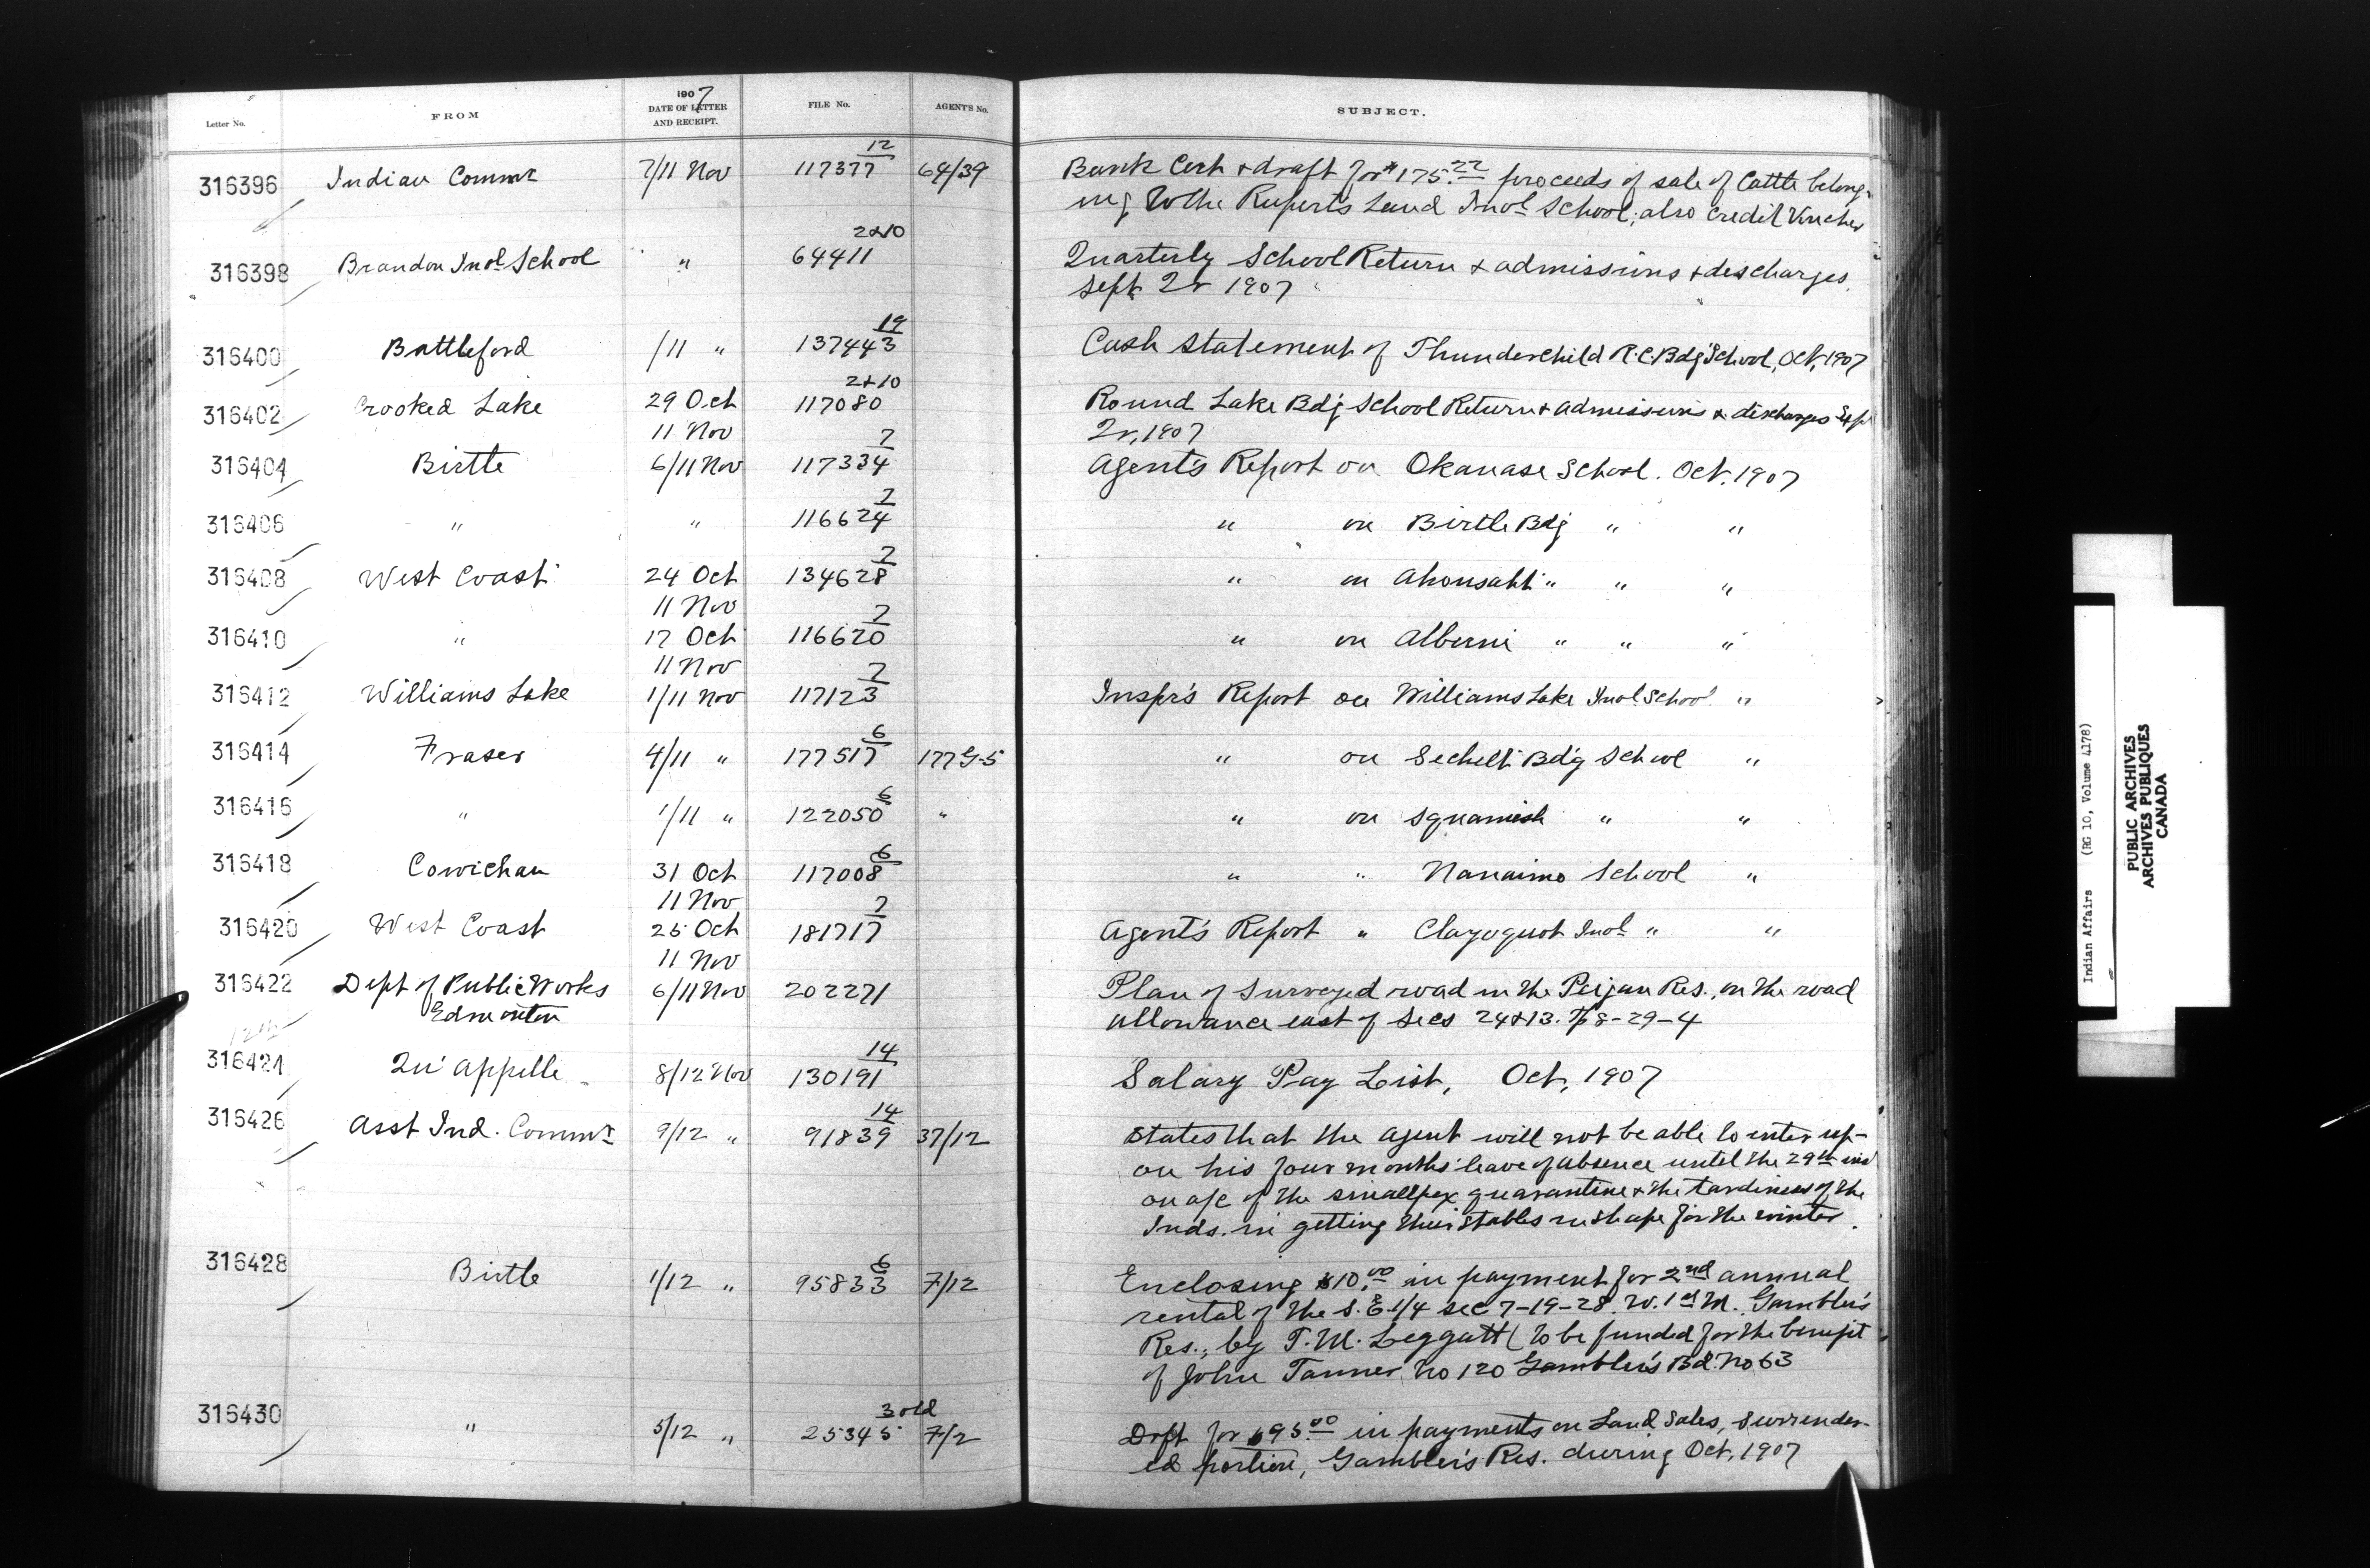 Letter No. FROM 1907 DATE OF LETTER AND RECEIPT. FILE No. AGENT'S No. SUBJECT.
316396 Indian Commr 7/11 Nov 117377 12 64/39 Bank Cert & draft for $175.22 proceeds of sale of Cattle belong-
ing to the Ruperts Land Indl School; also credit Voucher
316398 Brandon Indl School " " 64411 2&10 Quarterly School Return & admissions & discharges
Sept Qr 1907
316400 Battleford /11 " 137443 19 Cash Statement of Thunderchild R.C. Bdg School, Oct, 1907
316402 Crooked Lake 29 Oct 117080 2&10 Round Lake Bdg School Return & admissions & discharges Sept
11 Nov Qr, 1907
316404 Birtle 6/11 Nov 117334 7 Agent's Report on Okanase School. Oct. 1907
316406 " " 116624 7 " on Birtle Bdg " "
316408 West Coast 24 Oct 134628 7 " on Ahousaht " " "
11 Nov
316410 " 17 Oct 116620 7 " on Alberni " " "
11 Nov
316412 Williams Lake 1/11 Nov 117123 7 Inspr's Report on Williams Lake Indl School "
316414 Fraser 4/11 " 177517 6 177 G-5 " on Sechelt Bdg School "
316416 " 1/11 " 122050 6 " " on Squamish " "
316418 Cowichan 31 Oct 117008 6 " " Nanaimo School "
11 Nov
316420 West Coast 25 Oct 181717 7 Agent's Report " Clayoquot Indl " "
11 Nov
316422 Dept of Public Works 6/11 Nov 202271 Plan of Surveyed road in the Peigan Res., on the road
Edmonton allowance east of Secs 24 & 13. Tp 8-29-4
12th
316424 Qu'Appelle 8/12 Nov 130191 14 Salary Pay List, Oct, 1907
316426 Asst Ind. Commr 9/12 " 91839 14 37/12 States that the Agent will not be able to enter up-
on his four months leave of absence until the 29th inst
on a/c of the smallpox quarantine & the tardiness of the
Inds. in getting their stables in shape for the winter.
316428 Birtle 1/12 " 95833 6 7/12 Enclosing $10.00 in payment for 2nd annual
rental of the S.E 1/4 sec 7-19-28. W. 1st M. Gambler's
Res., by T. M. Leggatt (to be funded for the benefit
of John Tanner No 120 Gambler's Bd. No 63
316430 " 5/12 " 25345 3 old 7/2 Drft for $95.00 in payments on Land Sales, Surrender-
ed portion, Gambler's Res. during Oct, 1907
Indian Affairs (RG 10, Volume 4178)
PUBLIC ARCHIVES
ARCHIVES PUBLIQUES
CANADA